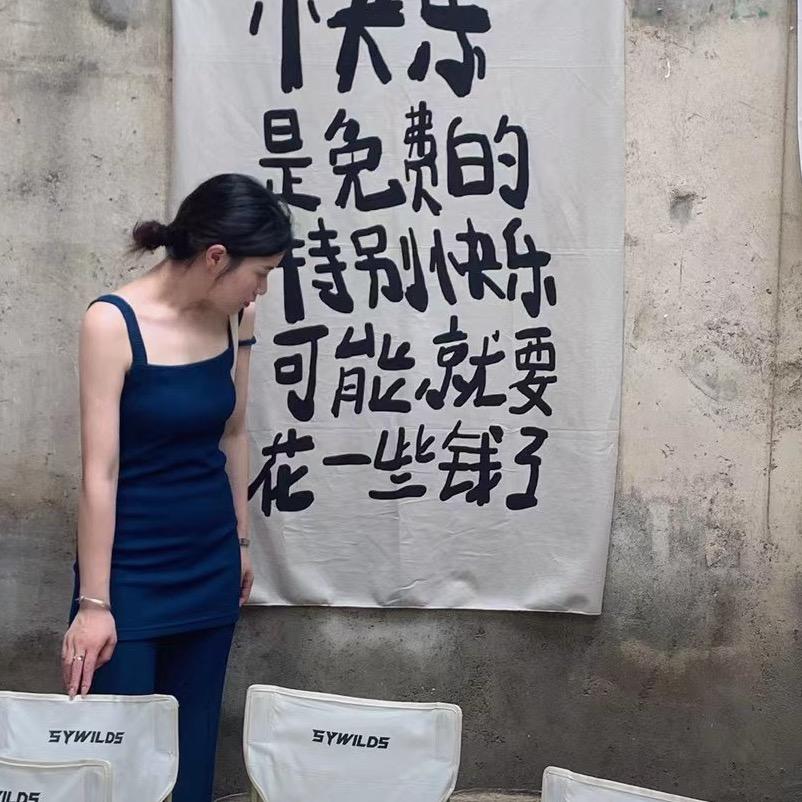 快乐
是免费的
特别快乐
可能就要
花一些钱了
SYWILDS
SYWILDS